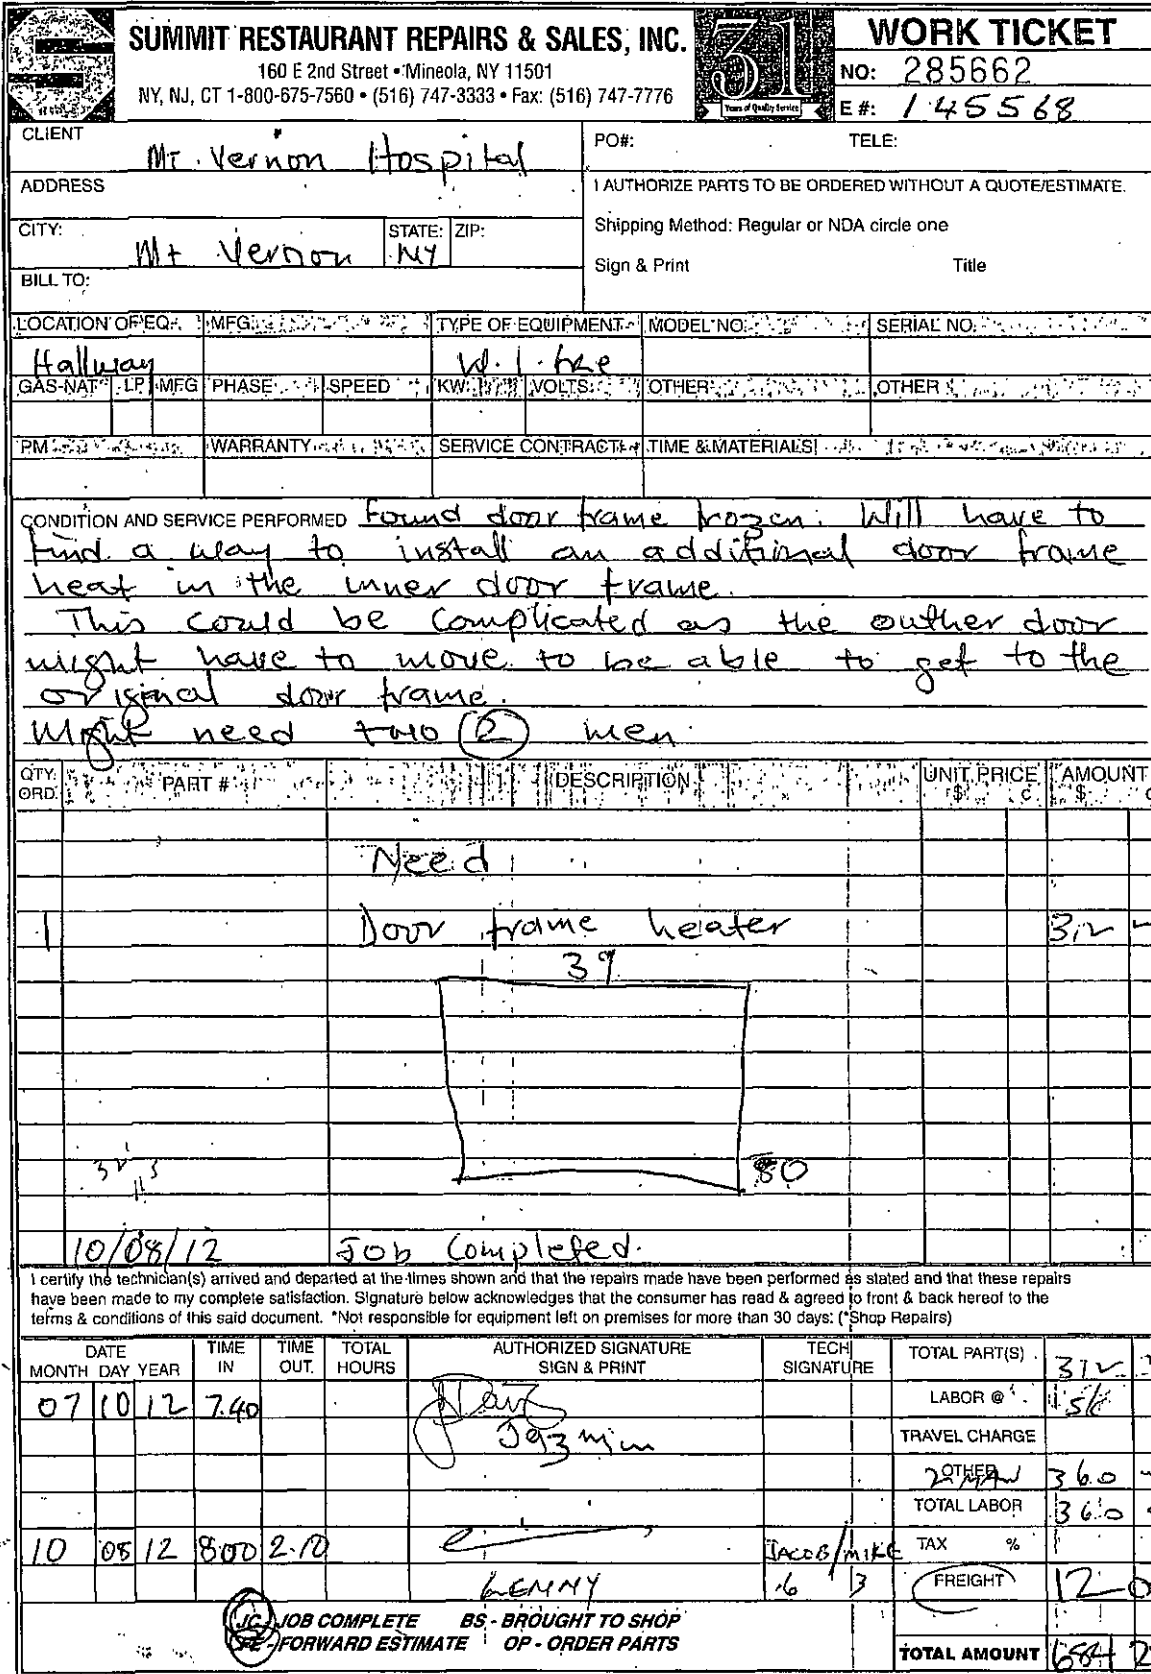 SUMMIT RESTAURANT REPAIRS & SALES, INC.
160 E 2nd Street • Mineola, NY 11501
NY, NJ, CT 1-800-675-7560 • (516) 747-3333 • Fax: (516) 747-7776
31
Years of Quality Service
WORK TICKET
NO: 285662
E #: 145568
CLIENT Mt. Vernon Hospital
PO#: TELE:
ADDRESS
I AUTHORIZE PARTS TO BE ORDERED WITHOUT A QUOTE/ESTIMATE.
CITY: Mt Vernon STATE: NY ZIP:
Shipping Method: Regular or NDA circle one
Sign & Print Title
BILL TO:
LOCATION OF EQ. MFG. TYPE OF EQUIPMENT MODEL NO. SERIAL NO.
Hallway W.I.
GAS-NAT LP MFG PHASE SPEED KW. VOLTS. OTHER OTHER
PM WARRANTY SERVICE CONTRACT TIME & MATERIALS
CONDITION AND SERVICE PERFORMED Found door frame frozen. Will have to
find a way to install an additional door frame
heat in the inner door frame.
This could be complicated as the outher door
might have to move to be able to get to the
original door frame.
Might need two (2) men.
QTY. ORD. PART # DESCRIPTION UNIT PRICE $ c AMOUNT $ c
Need
1 Door frame heater 312
39
80
10/08/12 Job Completed.
I certify the technician(s) arrived and departed at the times shown and that the repairs made have been performed as stated and that these repairs
have been made to my complete satisfaction. Signature below acknowledges that the consumer has read & agreed to front & back hereof to the
terms & conditions of this said document. *Not responsible for equipment left on premises for more than 30 days: (*Shop Repairs)
DATE MONTH DAY YEAR TIME IN TIME OUT. TOTAL HOURS AUTHORIZED SIGNATURE SIGN & PRINT TECH SIGNATURE TOTAL PART(S) 312
07 10 12 7.40 LABOR @
Jazmin TRAVEL CHARGE
OTHER 2 MAN 360
TOTAL LABOR 360
10 08 12 800 2.10 JACOB/MIKE TAX %
LENNY 6 3 FREIGHT 12 0
JC - JOB COMPLETE BS - BROUGHT TO SHOP
FE - FORWARD ESTIMATE OP - ORDER PARTS
TOTAL AMOUNT 684